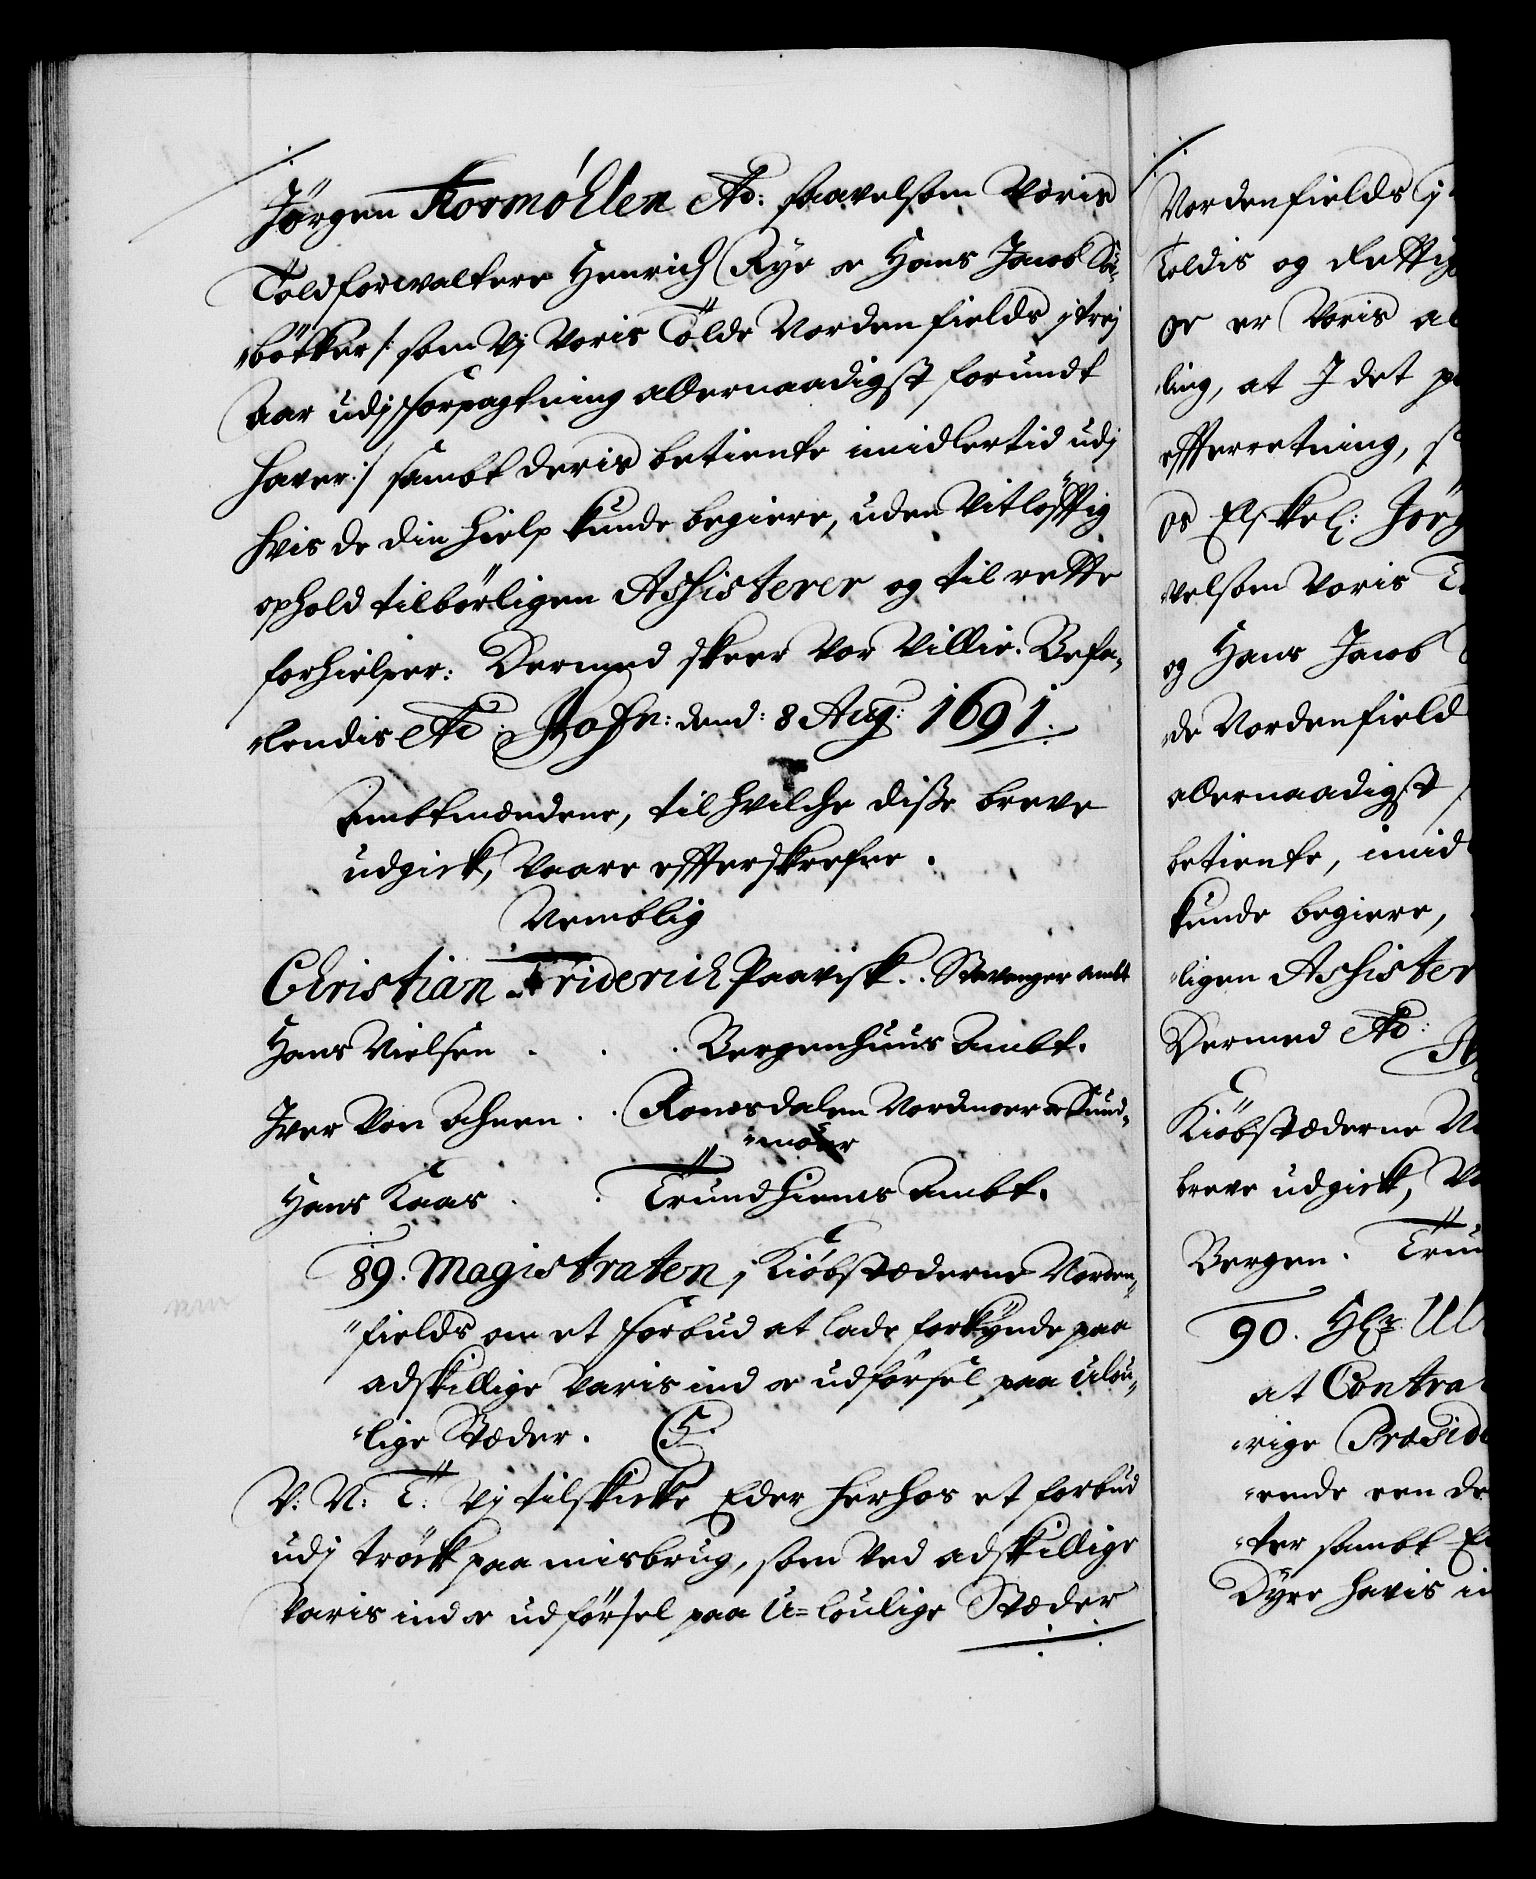 Jørgen Thormøhlen etc: saavelsom Voris
Toldforwaltere Henrich Rye oc Hans Jacob Schu-
bötker /: som Vj Voris Tolde Nordenfields i trej
Aar udj forpagtning allernaadigst forundt
haver :/ sambt deris betiente imidlertid udj
hvis de din hielp kunde begiere, uden Vitløfftig
ophold tilbørligen Assisterer og til rette
forhielper: Dermed skeer Vor Villie. Befa-
lendis etc. Hafn: dend: 8 Aug: 1691.
Ambtmændene, til hvilche disse breve
udgick, Vaare effterskrefne.
Nemblig
Christian Friderich Paavisk.. Stavanger ambt
Hans Nielsen . . . Bergenhuus Ambt.
Iver Von Ahnen . . Romsdalen Nordmoer oc Sund-
moer
Hans Kaas . . Trundhiems Ambt.
89. Magistraten i Kiøbstæderne Norden-
fields om et forbud at lade forkynde paa
adskillige Varis ind oc udførsel paa ulou-
lige Stæder. C5.
V. N: T: Vj tilskicke Eder herhos et forbud
udj trøck paa misbrug, som Ved adskillige
Varis ind oc udførsel paa U-loulige Stæder
Nordenfields i
Toldis og rettig
oc er Voris al
ling, at I det pa
effterretning, s
os Elskel: Jørg
velsom Voris To
og Hans Jacob
de Nordenfield
allernaadigst
betiente, imid
kunde begiere,
ligen Assister
Dermed etc:
Kiøbstæderne
breve udgick, V
Bergen. Trun
90. Hr: Ul
at Contra
rige Præside
ende een de
ter sambt E
Dyre havis in